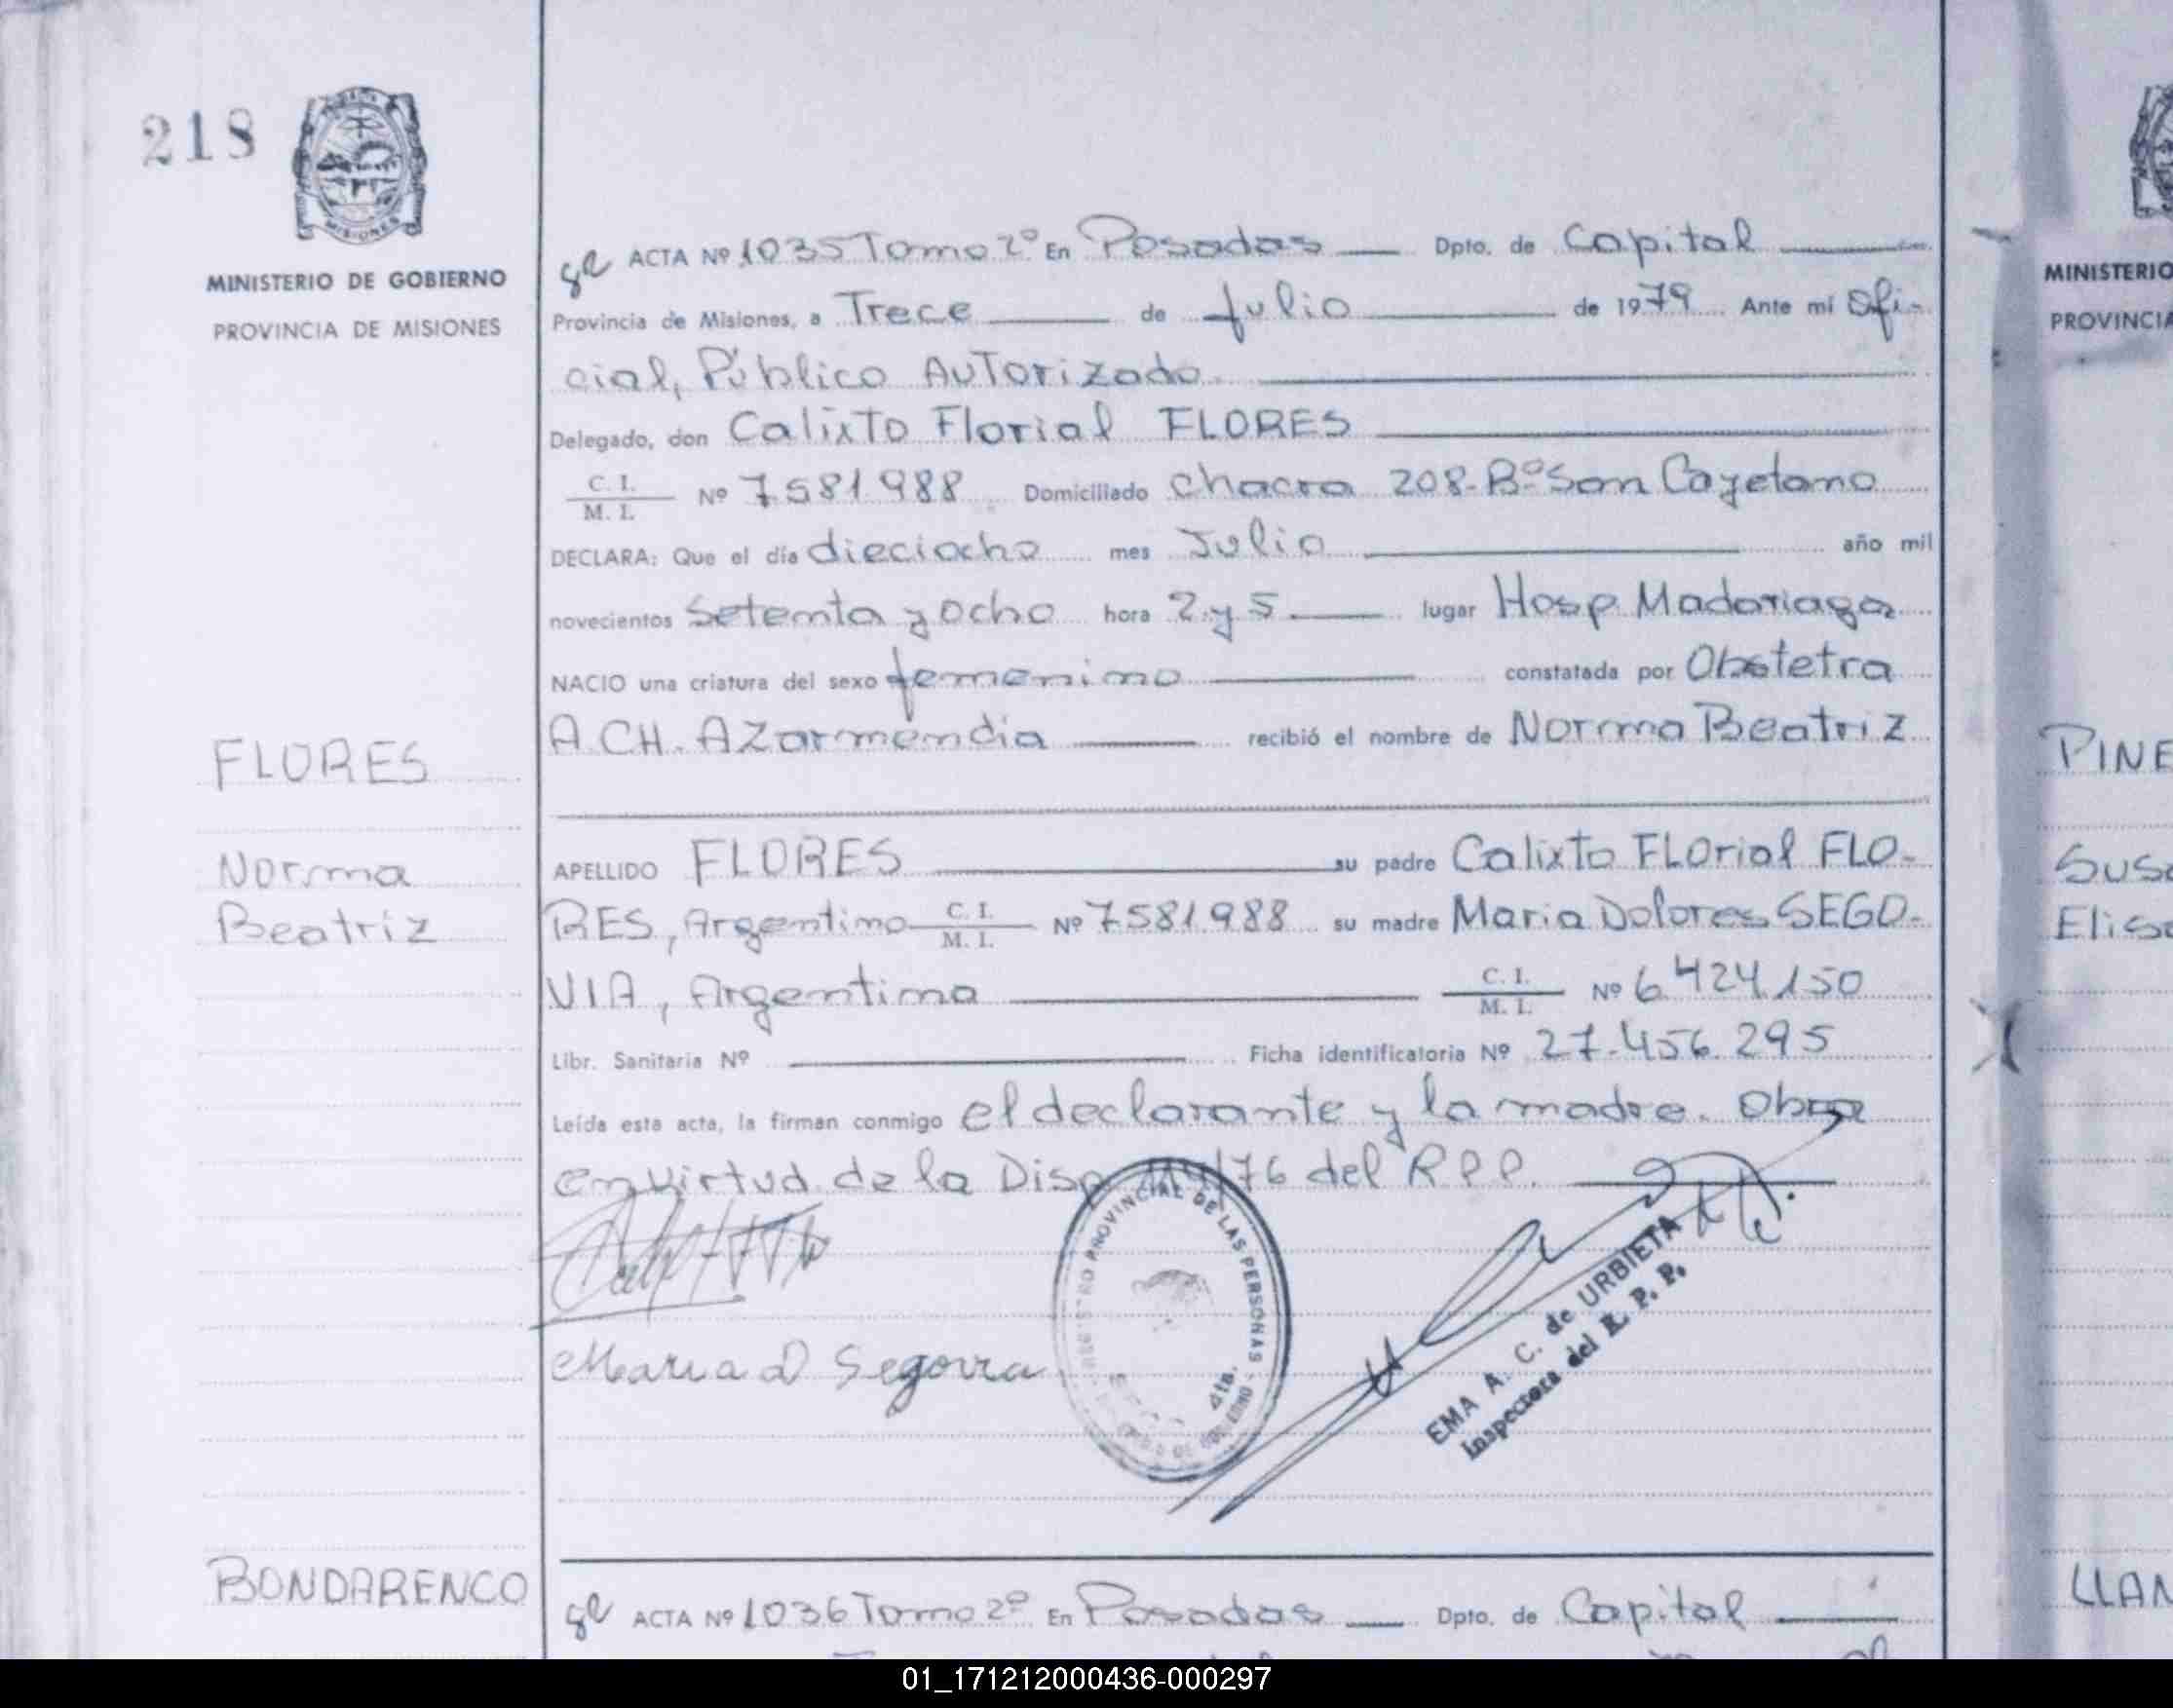 218
MISIONES
MINISTERIO DE GOBIERNO
PROVINCIA DE MISIONES
ACTA Nº 1035 Tomo 2º En Posadas Dpto. de Capital
Provincia de Misiones, a Trece de Julio de 1979 Ante mí Ofi-
cial, Público Autorizado
Delegado, don Calixto Florial FLORES
C. I.
M. I. Nº 7.581.988 Domiciliado Chacra 208-Bº San Cayetano
DECLARA: Que el día dieciocho mes Julio año mil
novecientos Setenta y Ocho hora 2 y 5 lugar Hosp. Madariaga
NACIO una criatura del sexo femenino constatada por Obstetra
A. CH. AZarmendia recibió el nombre de Norma Beatriz
FLORES
Norma
Beatriz
APELLIDO FLORES su padre Calixto FLOrial FLO-
RES, Argentino C. I.
M. I. Nº 7.581.988 su madre Maria Dolores SEGO-
VIA, Argentina C. I.
M. I. Nº 6.424.150
Libr. Sanitaria Nº Ficha identificatoria Nº 27.456.295
Leída esta acta, la firman conmigo el declarante y la madre. Obra
en virtud de la Disp. /76 del R.P.P.
Maria D Segovia
PROVINCIAL DE LAS PERSONAS
EMA A. C. de URBIETA
Inspectora del R. P. P.
BONDARENCO
ACTA Nº 1036 Tomo 2º En Posadas Dpto. de Capital
MINISTERIO
PROVINCIA
PINE
Susa
Elisa
LLAN
01_171212000436-000297